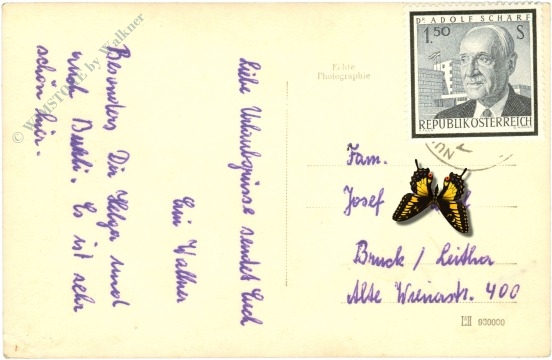 Dr ADOLF SCHÄRF
1.50 S
REPUBLIK ÖSTERREICH
Echte
Photographie
© WIMSTORE by Walkner
Liebe Urlaubsgrüsse sendet Euch
Walther
Besonders Dir Helga und
und Es ist sehr
schön hier.
Fam.
Josef
Bruck / Leitha
Alte Wienerstr. 400
930000